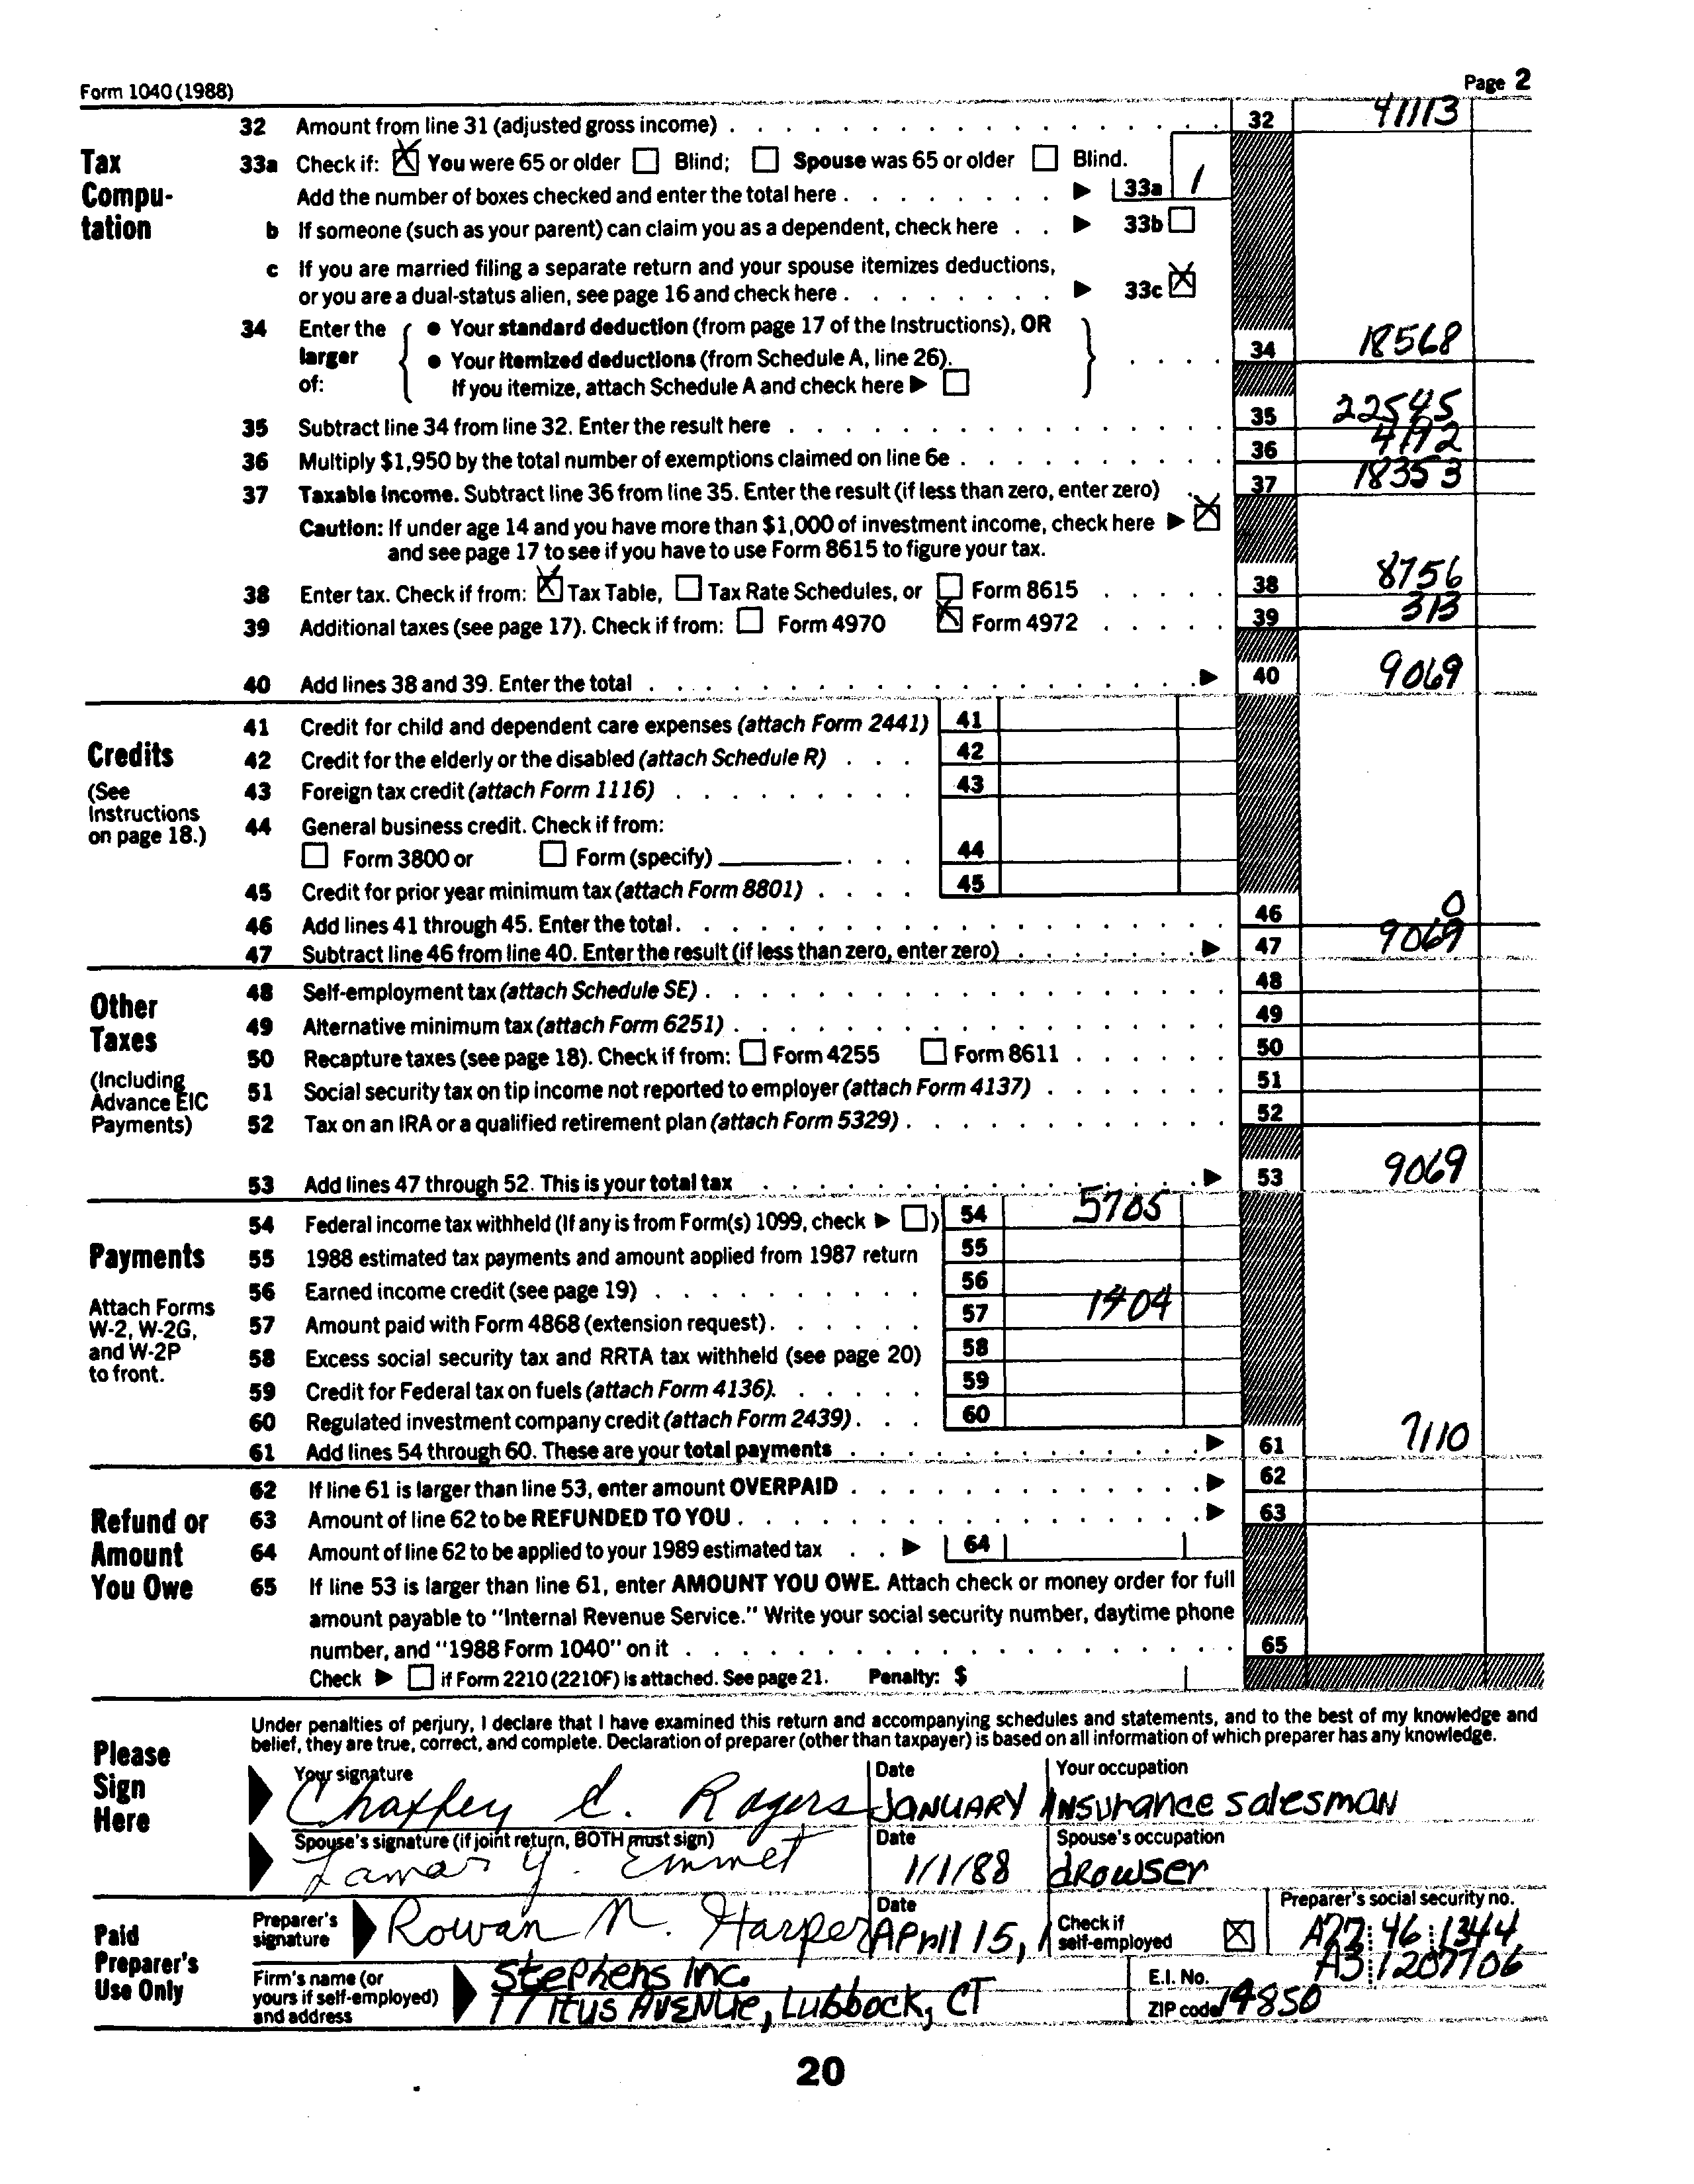 Form 1040 (1988) Page 2
32 Amount from line 31 (adjusted gross income) 32 41113
Tax Computation
33a Check if: You were 65 or older Blind; Spouse was 65 or older Blind.
Add the number of boxes checked and enter the total here 33a 1
b If someone (such as your parent) can claim you as a dependent, check here 33b
c If you are married filing a separate return and your spouse itemizes deductions,
or you are a dual-status alien, see page 16 and check here 33c
34 Enter the larger of:
● Your standard deduction (from page 17 of the Instructions), OR
● Your itemized deductions (from Schedule A, line 26).
If you itemize, attach Schedule A and check here
34 18568
35 Subtract line 34 from line 32. Enter the result here 35 22545
36 Multiply $1,950 by the total number of exemptions claimed on line 6e 36 4192
37 Taxable Income. Subtract line 36 from line 35. Enter the result (if less than zero, enter zero) 37 18353
Caution: If under age 14 and you have more than $1,000 of investment income, check here
and see page 17 to see if you have to use Form 8615 to figure your tax.
38 Enter tax. Check if from: Tax Table, Tax Rate Schedules, or Form 8615 38 8756
39 Additional taxes (see page 17). Check if from: Form 4970 Form 4972 39 313
40 Add lines 38 and 39. Enter the total 40 9069
Credits
(See Instructions on page 18.)
41 Credit for child and dependent care expenses (attach Form 2441) 41
42 Credit for the elderly or the disabled (attach Schedule R) 42
43 Foreign tax credit (attach Form 1116) 43
44 General business credit. Check if from:
Form 3800 or Form (specify) 44
45 Credit for prior year minimum tax (attach Form 8801) 45
46 Add lines 41 through 45. Enter the total. 46 0
47 Subtract line 46 from line 40. Enter the result (if less than zero, enter zero) 47 9069
Other Taxes
(Including Advance EIC Payments)
48 Self-employment tax (attach Schedule SE) 48
49 Alternative minimum tax (attach Form 6251) 49
50 Recapture taxes (see page 18). Check if from: Form 4255 Form 8611 50
51 Social security tax on tip income not reported to employer (attach Form 4137) 51
52 Tax on an IRA or a qualified retirement plan (attach Form 5329) 52
53 Add lines 47 through 52. This is your total tax 53 9069
Payments
Attach Forms W-2, W-2G, and W-2P to front.
54 Federal income tax withheld (If any is from Form(s) 1099, check ) 54 5705
55 1988 estimated tax payments and amount applied from 1987 return 55
56 Earned income credit (see page 19) 56
57 Amount paid with Form 4868 (extension request) 57 1404
58 Excess social security tax and RRTA tax withheld (see page 20) 58
59 Credit for Federal tax on fuels (attach Form 4136). 59
60 Regulated investment company credit (attach Form 2439) 60
61 Add lines 54 through 60. These are your total payments 61 7110
Refund or Amount You Owe
62 If line 61 is larger than line 53, enter amount OVERPAID 62
63 Amount of line 62 to be REFUNDED TO YOU 63
64 Amount of line 62 to be applied to your 1989 estimated tax 64
65 If line 53 is larger than line 61, enter AMOUNT YOU OWE. Attach check or money order for full
amount payable to "Internal Revenue Service." Write your social security number, daytime phone
number, and "1988 Form 1040" on it 65
Check if Form 2210 (2210F) is attached. See page 21. Penalty: $
Please Sign Here
Under penalties of perjury, I declare that I have examined this return and accompanying schedules and statements, and to the best of my knowledge and
belief, they are true, correct, and complete. Declaration of preparer (other than taxpayer) is based on all information of which preparer has any knowledge.
Your signature Date Your occupation
C. Rogers JANUARY INSurance salesmaN
Spouse's signature (if joint return, BOTH must sign) Date Spouse's occupation
Lamar Y. Emmet 1/1/88 dRowser
Paid Preparer's Use Only
Preparer's signature Rowan N. Harper Date APril 15, 1 Check if self-employed Preparer's social security no. A77 46 1344
Firm's name (or yours if self-employed) and address
Stephens Inc. E.I. No. A3 1207706
17 Titus AVENue, Lubbock, CT ZIP code 14850
20